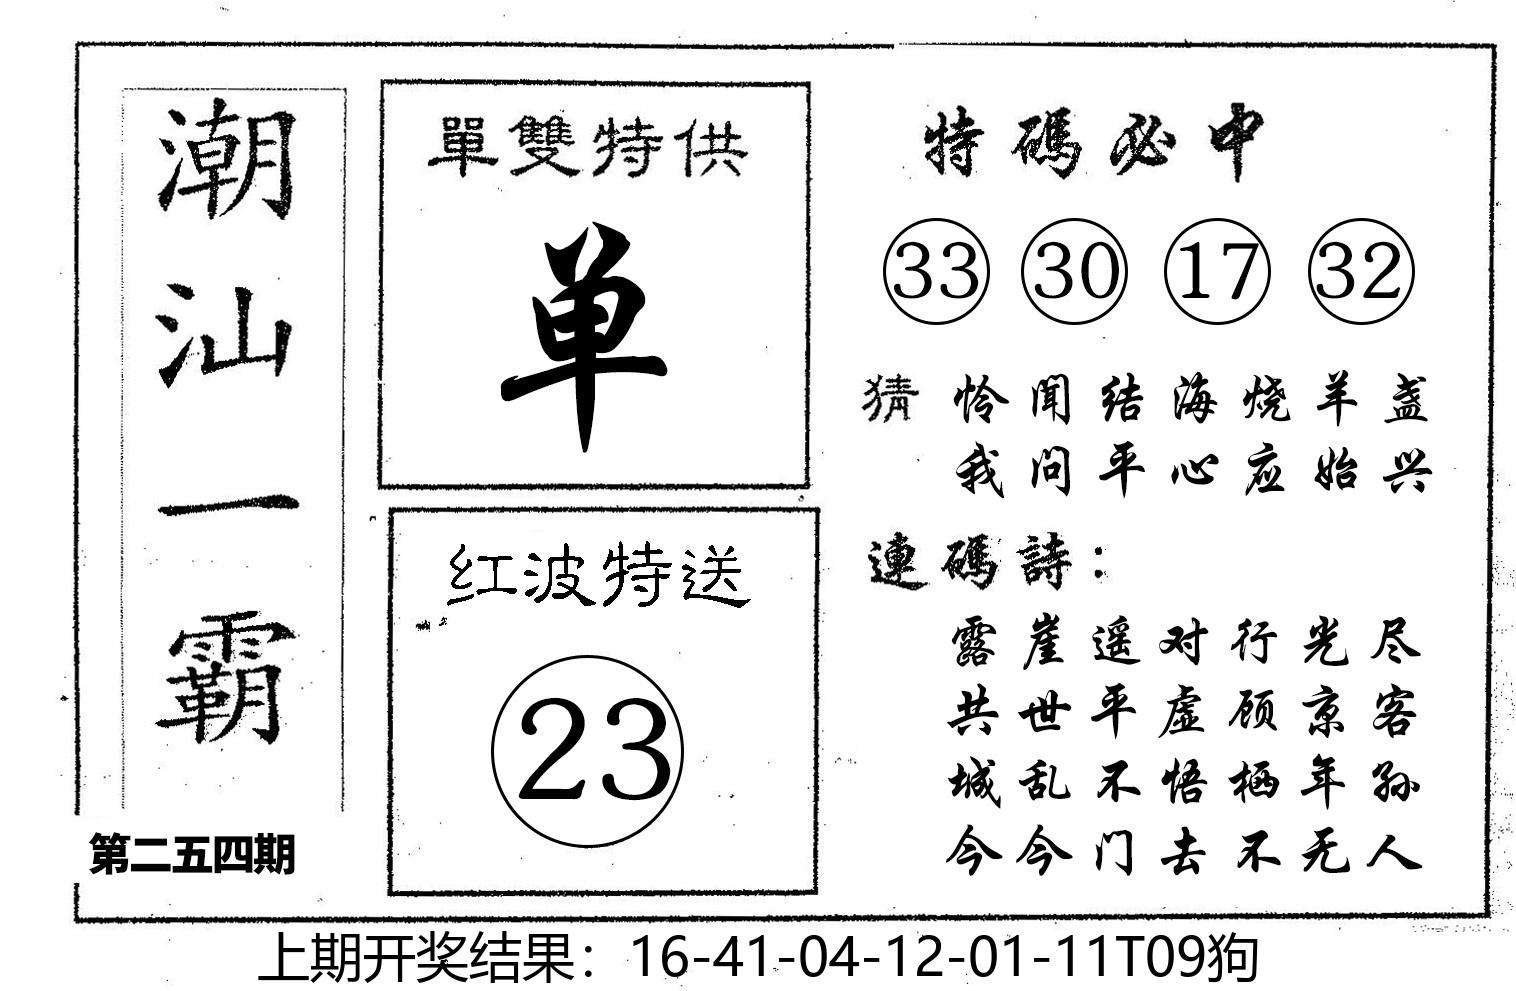 潮汕一霸
第二五四期
單雙特供
单
红波特送
23
特碼必中
33 30 17 32
猜 怜闻结海烧羊盏
我问平心应始兴
連碼詩：
露崖遥对行光尽
共世平虚顾京客
城乱不悟栖年孙
今今门去不无人
上期开奖结果：16-41-04-12-01-11T09狗